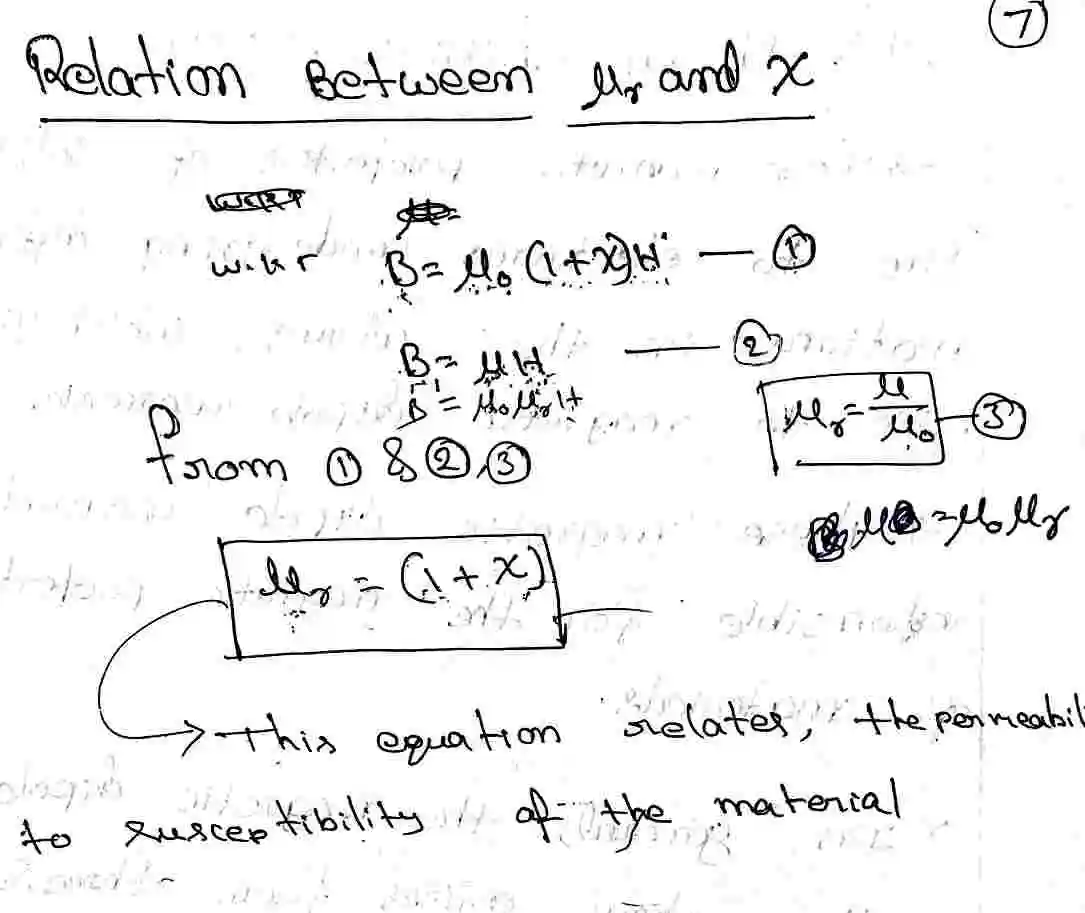 7
Relation Between μr and χ
w.k.r B = μ₀ (1+χ)H — ①
B = μH — ②
B = μ₀μrH
μr = μ/μ₀ — ③
from ① & ②,③
μ = μ₀ μr
μr = (1 + χ)
→ This equation relates, the permeabil
to susceptibility of the material